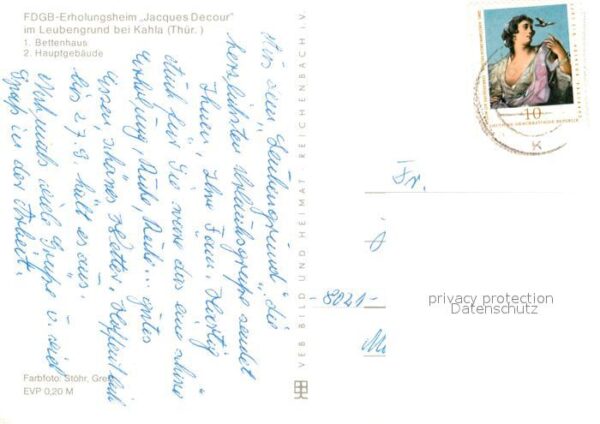 FDGB-Erholungsheim „Jacques Decour"
im Leubengrund bei Kahla (Thür.)
1. Bettenhaus
2. Hauptgebäude
Aus dem „Leubengrund" die
herzlichsten Urlaubsgrüße sendet
Ihnen, Ihre Fam.
auch für Sie wäre dies eine schöne
Erholung, Ruhe, Ruhe... gutes
Essen schönes Wetter. Hoffentlich
bis 27.9. hält es aus.
Nochmals viele Grüße u. viel
Spaß in der Arbeit.
Farbfoto: Stöhr, Gre
EVP 0,20 M
VEB BILD UND HEIMAT REICHENBACH i.V.
10
DEUTSCHE DEMOKRATISCHE REPUBLIK
Fr.
-8021-
privacy protection
Datenschutz